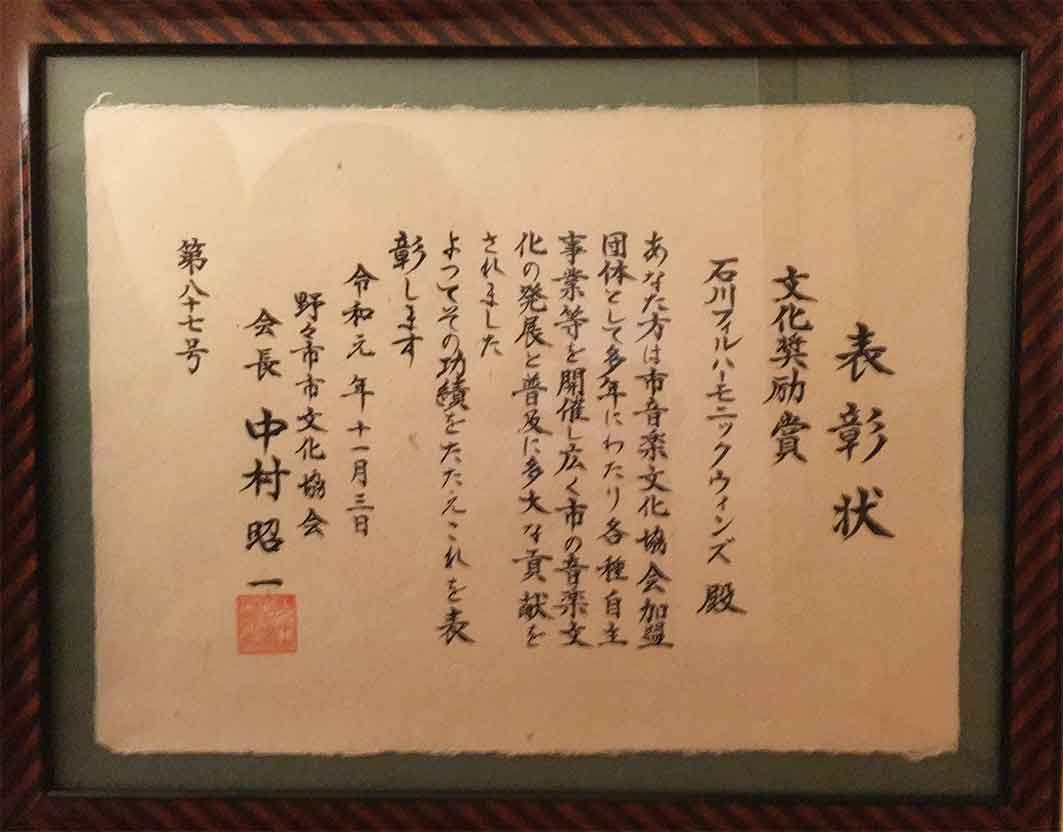 表彰状
文化奨励賞
石川フィルハーモニックウィンズ 殿
あなた方は市音楽文化協会加盟
団体として多年にわたり各種自主
事業等を開催し広く市の音楽文
化の発展と普及に多大な貢献を
されました
よってその功績をたたえこれを表
彰します
令和元年十一月三日
野々市市文化協会
会長 中村昭一
第八十七号